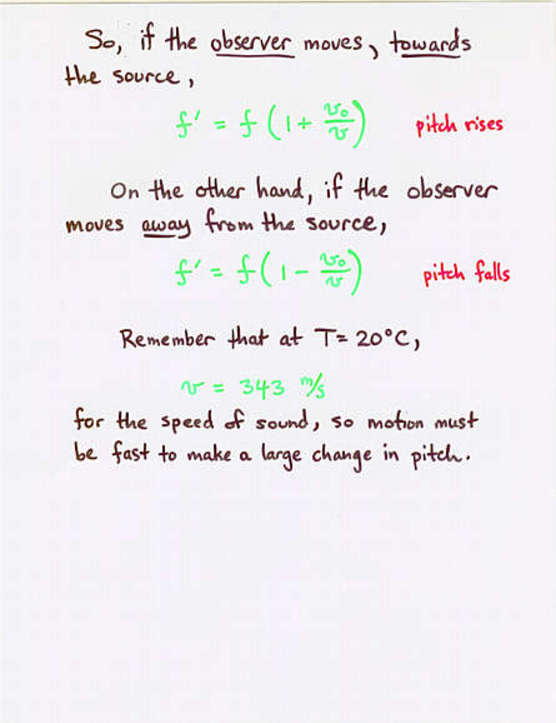 So, if the observer moves, towards
the source,
f' = f (1 + v₀/v) pitch rises
On the other hand, if the observer
moves away from the source,
f' = f (1 - v₀/v) pitch falls
Remember that at T = 20°C,
v = 343 m/s
for the speed of sound, so motion must
be fast to make a large change in pitch.